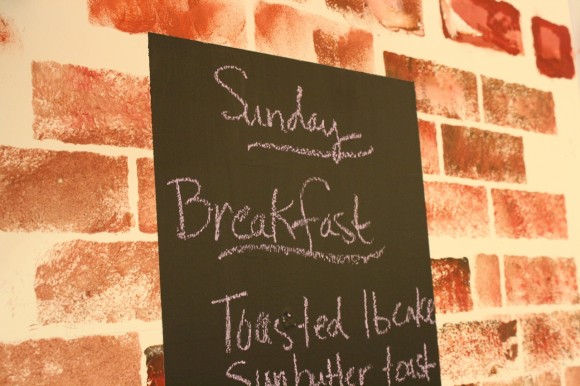 Sunday
Breakfast
Toasted lbcake
Sunbutter toast